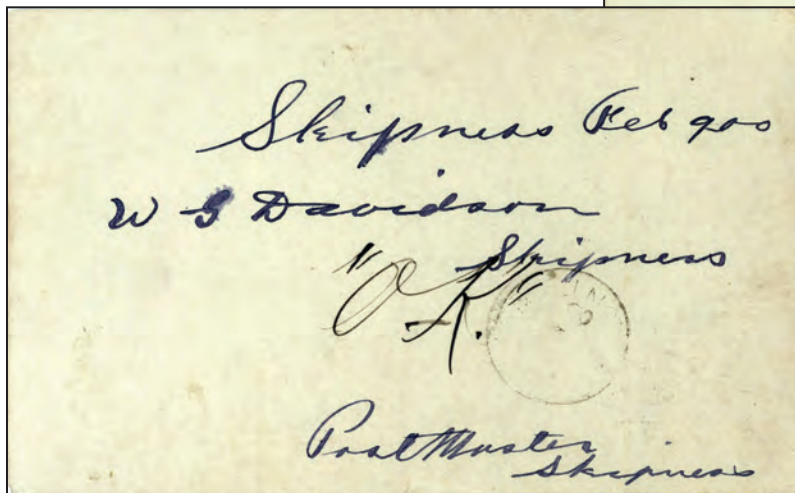 Skipness Feb 9 05
W G Davidson
Skipness
"O.K."
PostMaster
Skipness